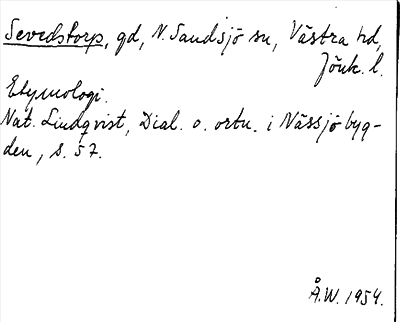 Sevedstorp, gd, N. Sandsjö sn, Västra hd,
Jönk. l.
Etymologi.
Nat. Lindqvist, Dial. o. ortn. i Nässjöbyg-
den, s. 57.
Å.W. 1954.